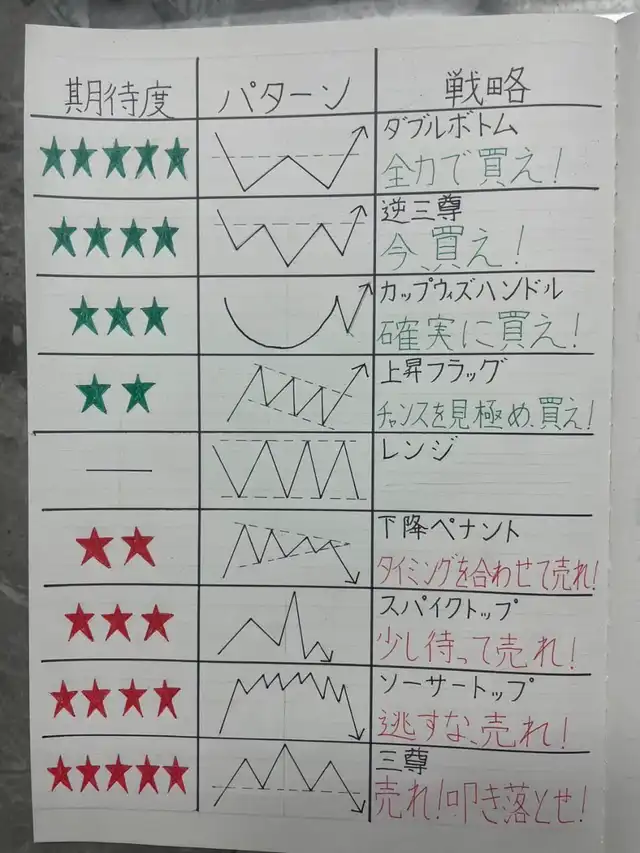 期待度 パターン 戦略
ダブルボトム
全力で買え!
逆三尊
今、買え!
カップウィズハンドル
確実に買え!
上昇フラッグ
チャンスを見極め、買え!
レンジ
下降ペナント
タイミングを合わせて売れ!
スパイクトップ
少し待って売れ!
ソーサートップ
逃すな、売れ!
三尊
売れ!叩き落とせ!